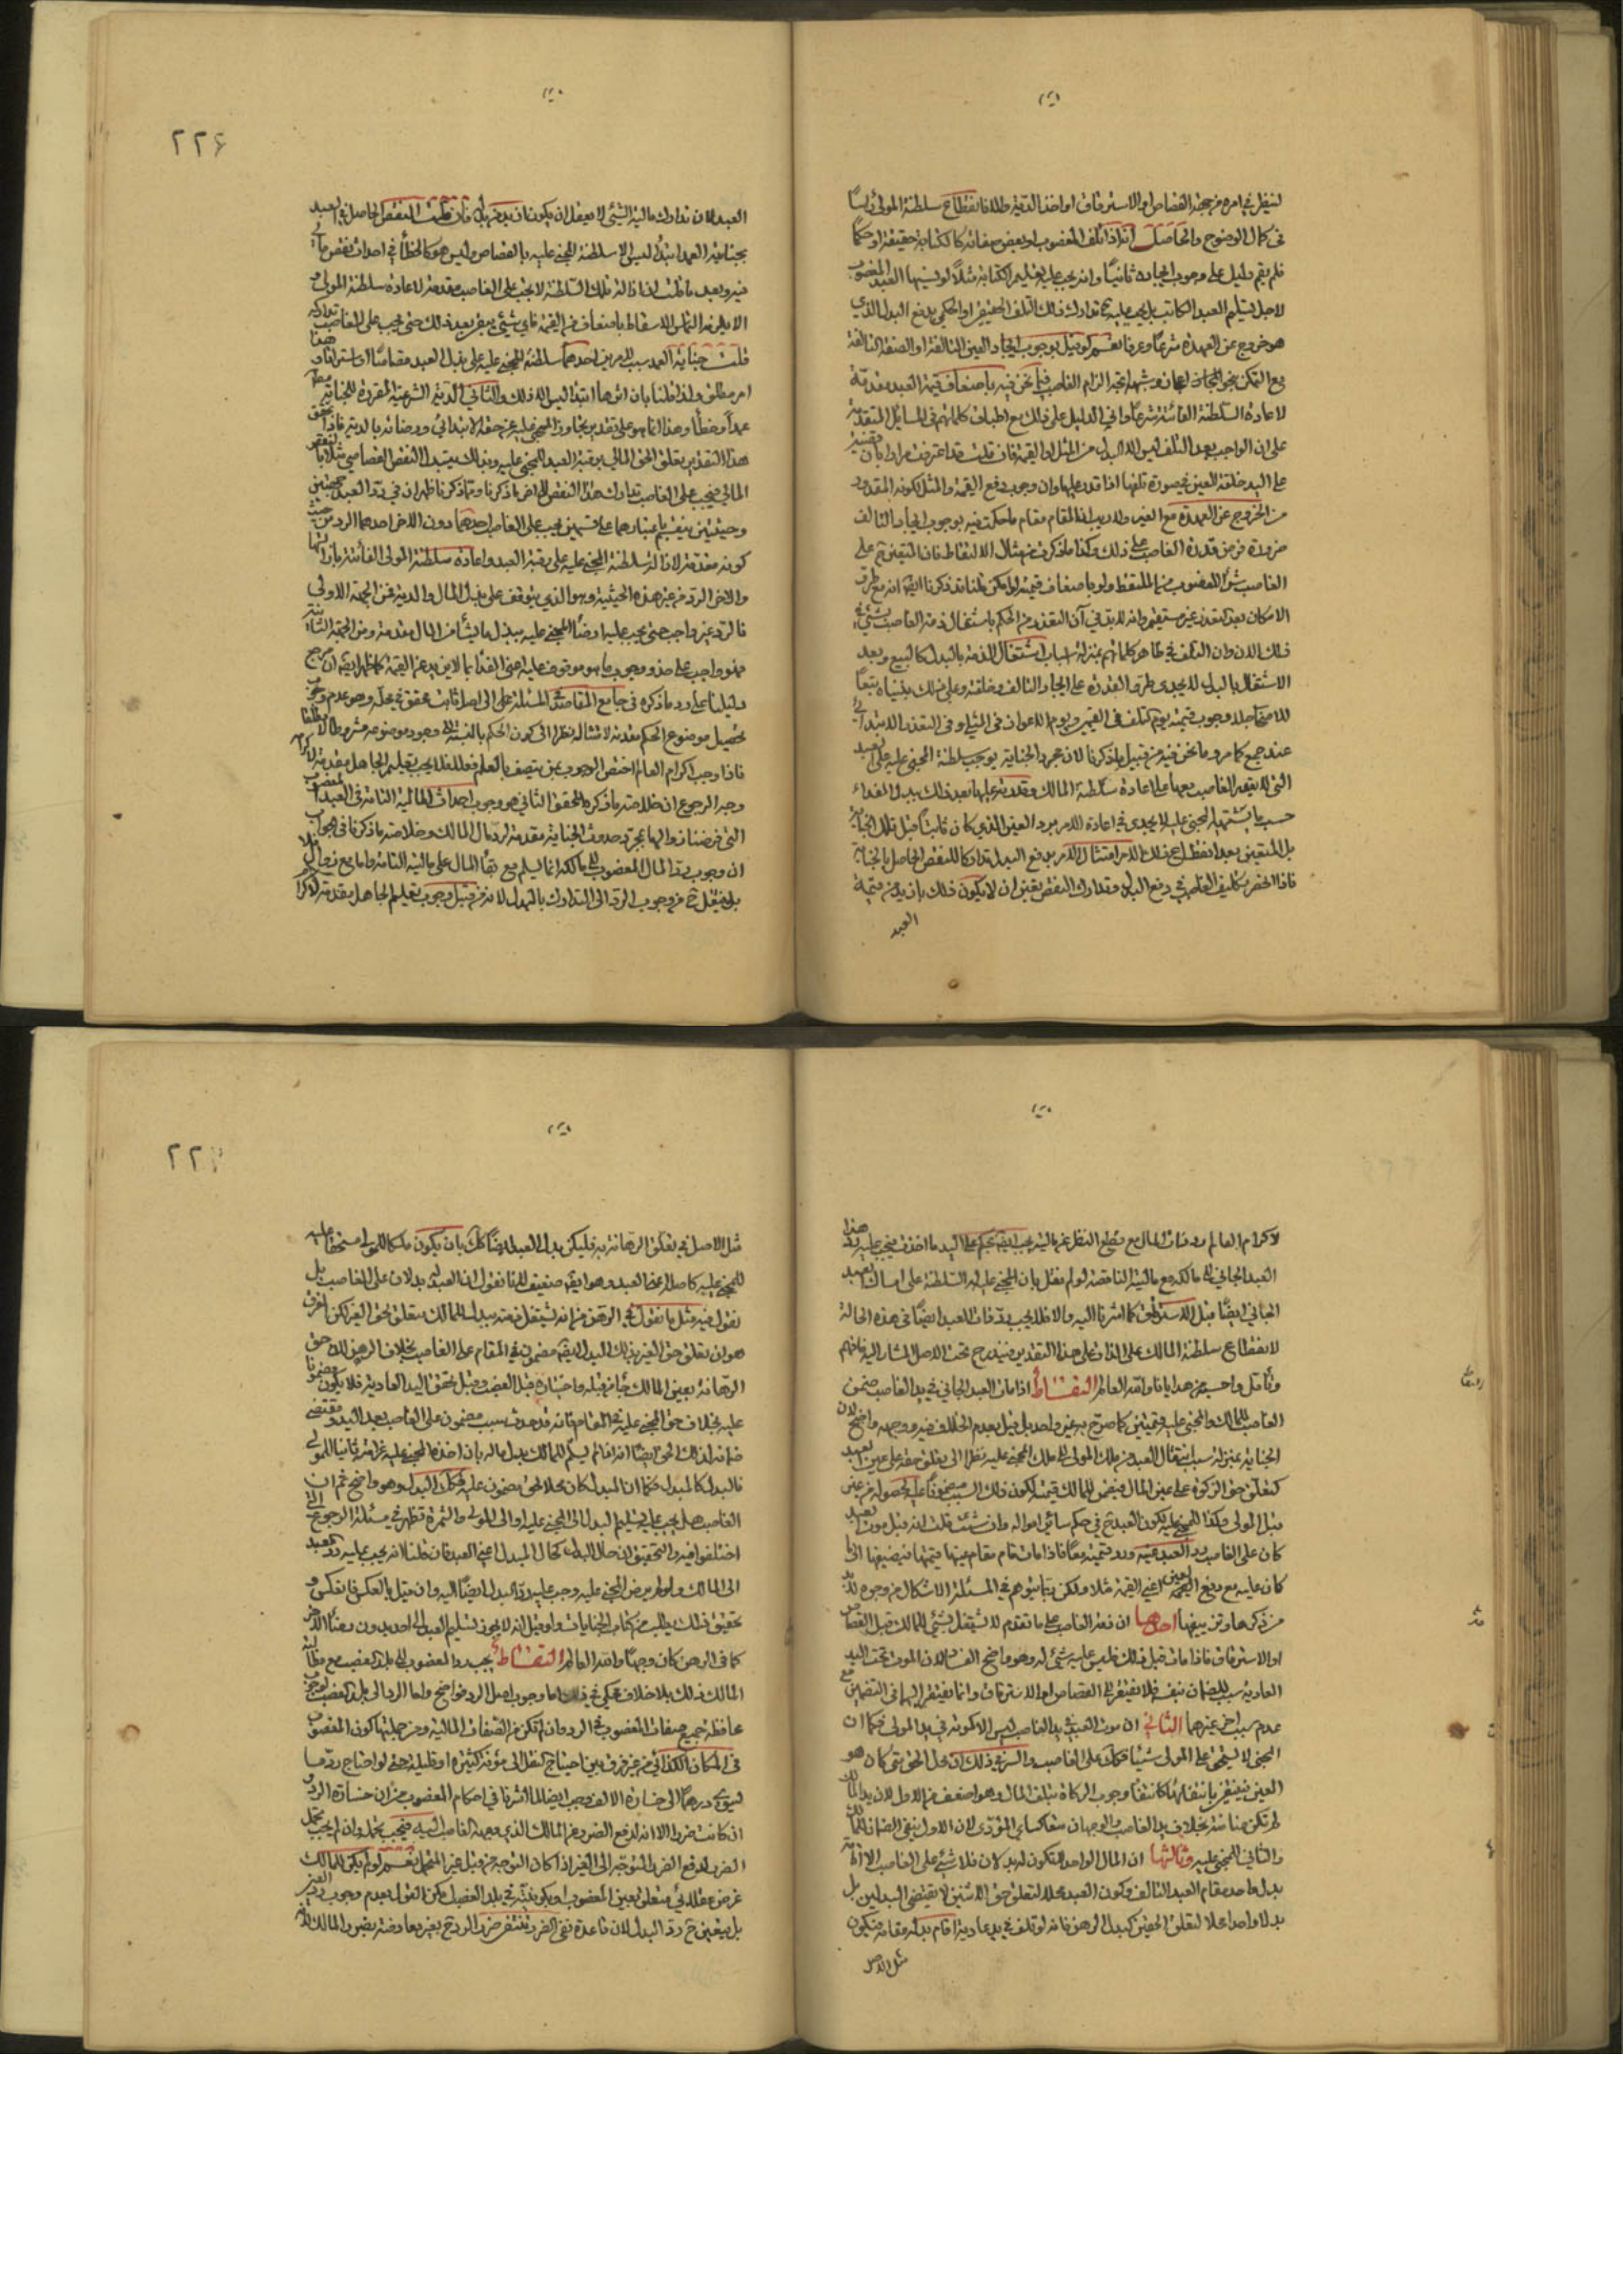 لينظر في امره من جهة القصاص او الاسترقاق او اخذ الدية مثلا فانقطاع سلطنة المولى
في كمال الوضوح والحاصل انه اذا تلف المغصوب او بعض صفاته كالكتابة حقيقة او حكما
فلم يقم دليل على وجوب ايجاده ثانيا وانه يجب عليه تعليم الكتابة مثلا لو نسيها العبد المغصوب
لاجل تسليم العبد الكاتب بل يجب عليه تدارك ذلك التلف الحقيقي او الحكمي بدفع البدل الذي
هو خروج عن العهدة شرعا وعرفا نعم لو قيل بوجوب ايجاد العين التالفة او الصفة التالفة
مع التمكن الزام الغاصب فيما نحن فيه باضعاف قيمة العبد مقدمة
لاعادة السلطنة الفائتة شرعا واني الدليل على ذلك مع اطباق كلماتهم في المسائل المتقدمة
على ان الواجب بعد التلف ليس الا البدل من المثل او القيمة فان قلت قد اعترفت مرارا بان
على اليد خلقة العين في صورة تلفها اذا قدر عليها وان وجوب دفع القيمة والمثل لكونه المقدور
من الخروج عن العهدة مع الغير ولا ريب ان المقام مقام ما حكمت فيه بوجوب ايجاد التالف
ضرورة فرض قدرة الغاصب على ذلك وكذا ما ذكرت في مثال الالتقاط فان المتيقن على
الغاصب شراء المغصوب من الملتقط ولو باضعاف قيمته لو امكن قلنا قد ذكرنا ايضا انه مع طرق
الامكان بعد التعذر غير مستقيم وانه لا بد في آن التعذر من الحكم باشتغال ذمة الغاصب بشيء
ذلك الان وان التلف في ظاهر كلماتهم بمنزلة اسباب اشتغال الذمة بالبدل كالبيع وبعد
الاشتغال بالبدل لا يجدي طرق القدرة على ايجاد التالف وخلقته وعلى ذلك بنيناه تبعا
للاصحاب وجوب قيمة يوم التلف في القيمي ويوم الاعواز في المثلي وفي التعذر الابتدائي
عند جمع كما مر وما نحن فيه من قبيل ما ذكرنا لان مجرد الجناية يوجب سلطنة المجني عليه على العبد
التي لا يقدر الغاصب معها على اعادة سلطنة المالك وقدرته عليها بعد ذلك ببذل الفداء
حسب ما يشتهيه المجني عليه لا يجدي في اعادة الامر برد العين الذي كان ثابتا قبل تلك الجناية
بل المتيقن بعد انفصال عن ذلك الامر امتثال الامر بدفع البدل تداركا للنقص الحاصل بالجناية
فاذا انحصر تكليف الغاصب في دفع البدل وتدارك النقص تعين ان لا يكون ذلك بازيد من قيمة
العبد
٢٢٦
العبد لان تدارك مالية الشيء لا يعقل ان يكون ازيد من بدله فان قلت النقص الحاصل في العبد
بجنايته العمد ابتداء ليس الا سلطنة المجني عليه بالقصاص وليس هو كالخطأ في احداث نقص مالي
فيه وبعد ما قلت ان ازالة تلك السلطنة لا يجب على الغاصب مقدمة لاعادة سلطنة المولى
الا بعد التماس الاسقاط باضعاف من القيمة فاي شيء يبقى بعد ذلك حتى يجب على الغاصب تداركه
قلت جناية العبد سبب لامرين احدهما سلطنة المجني عليه على بذل العبد قصاصا او استرقاقا
امر مطلق ولذا قلنا بان اثرها ابتداء ليس الا ذلك والثاني الدية الشرعية المقررة للجناية
عمدا وخطأ وهذا انما هو على تقدير تجاوز المجني عليه عن حقه الابتدائي ورضائه بالدية فاذا تحقق
هذا التقدير يتعلق الحق المالي برقبة العبد للمجني عليه وبذلك يتبدل النقص القصاصي مثلا بالنقص
المالي فيجب على الغاصب تدارك هذا النقص المالي وما ذكرنا ظهر ان في رد العبد جهتين
وحيثيتين ينقسم باعتبارهما على قسمين يجب على الغاصب احدهما دون الاخر احدهما الرد من حيث
كونه مقدمة لازالة سلطنة المجني عليه على رقبة العبد واعادة سلطنة المولى الفائتة بازالتها
والاخر الرد من غير هذه الحيثية وهو الذي يتوقف على بذل المال والدية فمن الجهة الاولى
فالرد غير واجب حتى يجب عليه ارضاء المجني عليه ببذل ما يشاء من المال مقدمة ومن الجهة الثانية
فهو واجب على حذو وجوب ما هو موقوف عليه اعني الفداء بالازيد عن القيمة كما ظهر
دليلنا على رد ما ذكره في جامع المقاصد في المسئلة على الى اصل ثابت محقق في محله وهو عدم وجوب
تحصيل موضوع الحكم مقدمة لامتثاله نظرا الى كون الحكم بالنسبة الى وجود موضوعه مشروطا لا مطلقا
فاذا وجب اكرام العالم اختص الوجوب بمن يتصف بالعلم فعلا فلا يجب تعليم الجاهل مقدمة لاكرامه
وجه الرجوع ان خلاصة ما ذكره المحقق الثاني هو وجوب احداث المالية التامة في العبد المغصوب
التي فرضنا زوالها بمجرد حدوث الجناية مقدمة لرد مال المالك وخلاصة ما ذكرنا في الجواب
ان وجوب رد المال المغصوب الى مالكه انما يسلم مع بقاء المال على مالية التامة واما مع زوال
بل ينتقل ح من وجوب الرد الى التدارك بالبدل لانه من قبيل وجوب تعليم الجاهل مقدمة لاكرام
لاكرام العالم رد ذات المال مع قطع النظر عن مالية يجب بحكم على اليد ما اخذت فيجب عليه رد هذا
العبد الجاني الى مالكه مع مالية الناقصة لو لم نقل بان للمجني عليه السلطنة على امساك العبد
الجاني ايضا قبل الاسترقاق كما اشرنا اليه والا فلا يجب رد ذات العبد ايضا في هذه الحالة
لانقطاع سلطنة المالك على الذات على هذا التقدير فيندرج تحت الاصل المشار اليه فافهم
وتأمل واحسبه من هدايانا والله العالم التقاط اذا مات العبد الجاني في يد الغاصب ضمن
الغاصب للمالك والمجني عليه قيمتين كما صرح به غير واحد بل قيل بعدم الخلاف فيه ووجهه واضح لان
الجناية بمنزلة سبب انتقال العبد من ملك المولى الى ملك المجني عليه نظرا الى تعلق حقه على عين العبد
كتعلق حق الزكوة على عين المال فيضمن للمالك قيمته لكون ذلك السبب مضمونا عليه لحصوله من غير
قبل المولى وكذا للمجني عليه لكون العبد ح في حكم سائر امواله وان شئت قلت انه قبل موت العبد
كان على الغاصب رد العبد عينه ورد قيمته معا فاذا مات قام مقام عينها قيمتها فيضيفها الى ما
كان عليه مع دفع العين اعني القيمة مثلا ولكن يتأتى وهم في المسئلة الاشكال من وجوه لا بد
من ذكرها وتزييفها احدها ان ذمة الغاصب على ما تقدم لا يشتغل بشيء للمالك قبل القصاص
او الاسترقاق فاذا مات قبل ذلك فليس عليه شيء له وهو واضح الفساد لان الموت تحت اليد
العادية سبب للضمان بنفسه فلا يفتقر الى القصاص او الاسترقاق وانما يفتقر اليهما في التضمين مع
عدم سبب اخر غيرهما الثاني ان موت العبد في يد الغاصب ليس الا كموته في يد المولى فكما ان
المجني لا يستحق على المولى شيئا فكذلك على الغاصب والسر في ذلك ان محل الحق متى كان هو
العين فينتفي بانتفائها كانتفاء وجوب الزكاة بتلف المال وهو اضعف من الاول لان يد المالك
لم تكن ضامنة بخلاف يد الغاصب والوجهان متعاكسان في المؤدى لان الاول ينفي الضمان للمالك
والثاني للمجني عليه وثالثها ان المال الواحد لا يكون له بدلان فلا شيء على الغاصب الا اقامة
بدل واحد مقام العبد التالف وكون العبد محلا لتعلق حق الاثنين لا يقتضي البدلين بل
بدلا واحدا محلا لتعلق الحقين كبدل الرهن فانه لو تلف في يد عادية اقام بدله مقامه فيكون
مثل الاصل
٢٢
مثل الاصل في تعلق الرهانة به فليكن بدل العبد ايضا كك بان يكون ملكا للمولى مستحقا عليه
للمجني عليه كاصله اعني العبد وهو ايضا ضعيف لانا نقول ان العبد له بدلان على الغاصب بل
نقول فيه مثل ما نقول في الرهن من انه يشتغل ذمته ببدل للمالك متعلق لحق الغير لكن الفرق
هو ان تعلق حق الغير بذلك البدل ايضا مضمون في المقام على الغاصب بخلاف الرهن لان حق
الرهانة بعين المالك جاء من قبله واختياره قبل الغصب وقبل تحقق اليد العادية فلا يكون مضمونا
عليه بخلاف حق المجني عليه في المقام فانه قد حدث بسبب مضمون على الغاصب بعد اليد ومقتضى
ضمانه لذلك الحق ايضا انه اذا لم يسلم للمالك بدل ماله بان اخذه المجني عليه غرامته ثانيا للمولى
فالبدل كالمبدل فكما ان المبدل كان محلا لحق مضمون عليه فكذلك البدل وهو واضح ثم ان
الغاصب هل يجب عليه تسليم البدل الى المجني عليه او الى المولى والثمرة تظهر في مسئلة الرجوع التي
اختلفوا فيه والتحقيق ان حال البدل كحال المبدل اعني العبد فان قلنا لانه يجب عليه رد العبد
الى المالك ولو لم يرض المجني عليه وجب عليه رد البدل ايضا اليه وان قيل بالعكس فانعكس و
تحقيق ذلك يطلب من كتاب الجنايات ولو قيل انه لا يجوز تسليم العبد الى احد بدون رضاء الاخر
كما في الرهن كان وجيها والله العالم التقاط يجب رد المغصوب الى بلد الغصب مع مطالبة
المالك ذلك بلا خلاف محكي في ذلك اما وجوب اصل الرد فواضح واما الرد الى بلد الغصب لوجوب
محافظة جميع صفات المغصوب في الرد وان لم تكن من الصفات المالية ومن جملتها كون المغصوب
في المكان الكذائي من غير فرق بين احتياج النقل الى مؤنة كثيرة او قليلة حتى لو احتاج رد ما
يسوي درهما الى خسارة الالف وجب ايضا لما اشرنا في احكام المغصوب من ان خسارة الرد و
ان كانت ضررا الا انه لدفع الضرر عن المالك الذي وجهه الغاصب اليه فيجب تحمله وان لم يجب تحمل
الضرر لدفع الضرر المتوجه الى الغير اذا كان التوجه من قبل غير المتحمل نعم لو لم يكن للمالك
غرض عقلائي متعلق بعين المغصوب او بكونه في بلد الغصب امكن القول بعدم وجوب رد العين
بل يتعين ح رد البدل لان قاعدة نفي الضرر تقتضي ضرر الرد ح بغير معارضته بضرر المالك لانه